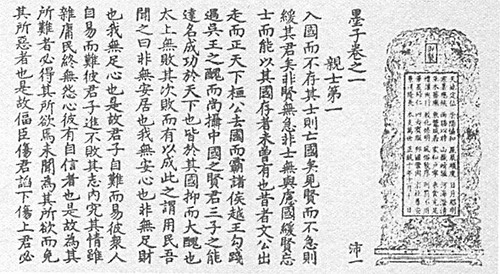 墨子卷之一
親士第一
入國而不存其士則亡國矣見賢而不急則
緩其君矣非賢無急非士無與慮國緩賢忘
士而能以其國存者未曾有也昔者文公出
走而正天下桓公去國而霸諸侯越王勾踐
遇吳王之醜而尚攝中國之賢君三子之能
達名成功於天下也皆於其國抑而大醜也
太上無敗其次敗而有以成此之謂用民吾
聞之曰非無安居也我無安心也非無足財
也我無足心也是故君子自難而易彼衆人
自易而難彼君子進不敗其志內究其情雖
雜庸民終無怨心彼有自信者也是故為其
所難者必得其所欲焉未聞為其所欲而免
其所惡者也是故偪臣傷君諂下傷上君必
沛一